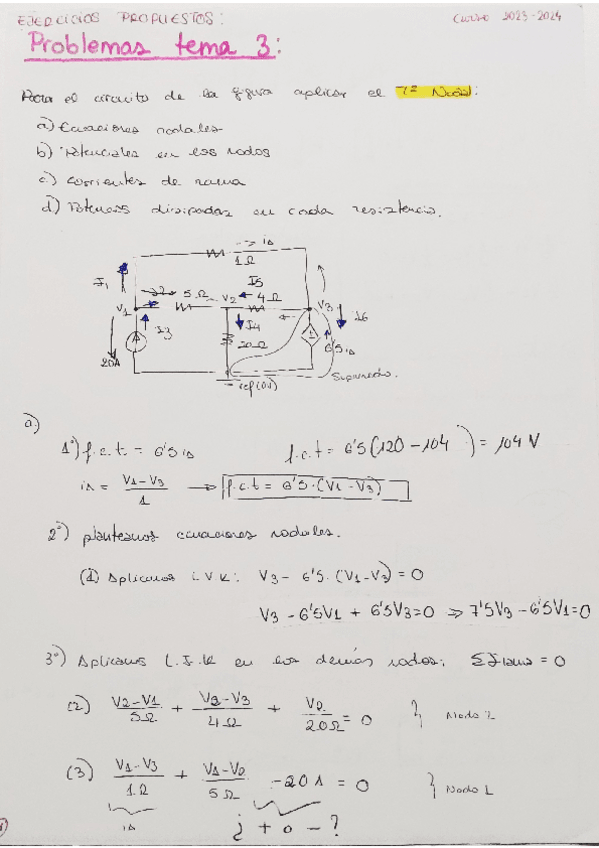 EJERCICIOS PROPUESTOS:
CURSO 2023-2024
Problemas tema 3:
Para el circuito de la figura aplicar el Tª Nodal:
a) Ecuaciones nodales
b) Potenciales en los nodos
c) Corrientes de rama
d) Potencias disipadas en cada resistencia.
--> iΔ
1Ω
I1
I2
5Ω
V2
I5
4Ω
V3
V1
I3
I4
20Ω
I6
20A
6'5 iΔ
ref(0V)
Supernodo.
a)
1º) f.c.t = 6'5 iΔ
f.c.t = 6'5 (120 - 104) = 104 V
iΔ = V1-V3/1 → f.c.t = 6'5·(V1-V3)
2º) planteamos ecuaciones nodales.
(1) Aplicamos L.V.K: V3 - 6'5·(V1-V3) = 0
V3 - 6'5V1 + 6'5V3=0 ⇒ 7'5V3 - 6'5V1=0
3º) Aplicamos L.I.K en los demás nodos: ΣIrama = 0
(2) V2-V1/5Ω + V2-V3/4Ω + V2/20Ω = 0 } Nodo 2
(3) V1-V3/1Ω + V1-V2/5Ω -20A = 0 } Nodo 1
iΔ
¿ + o - ?